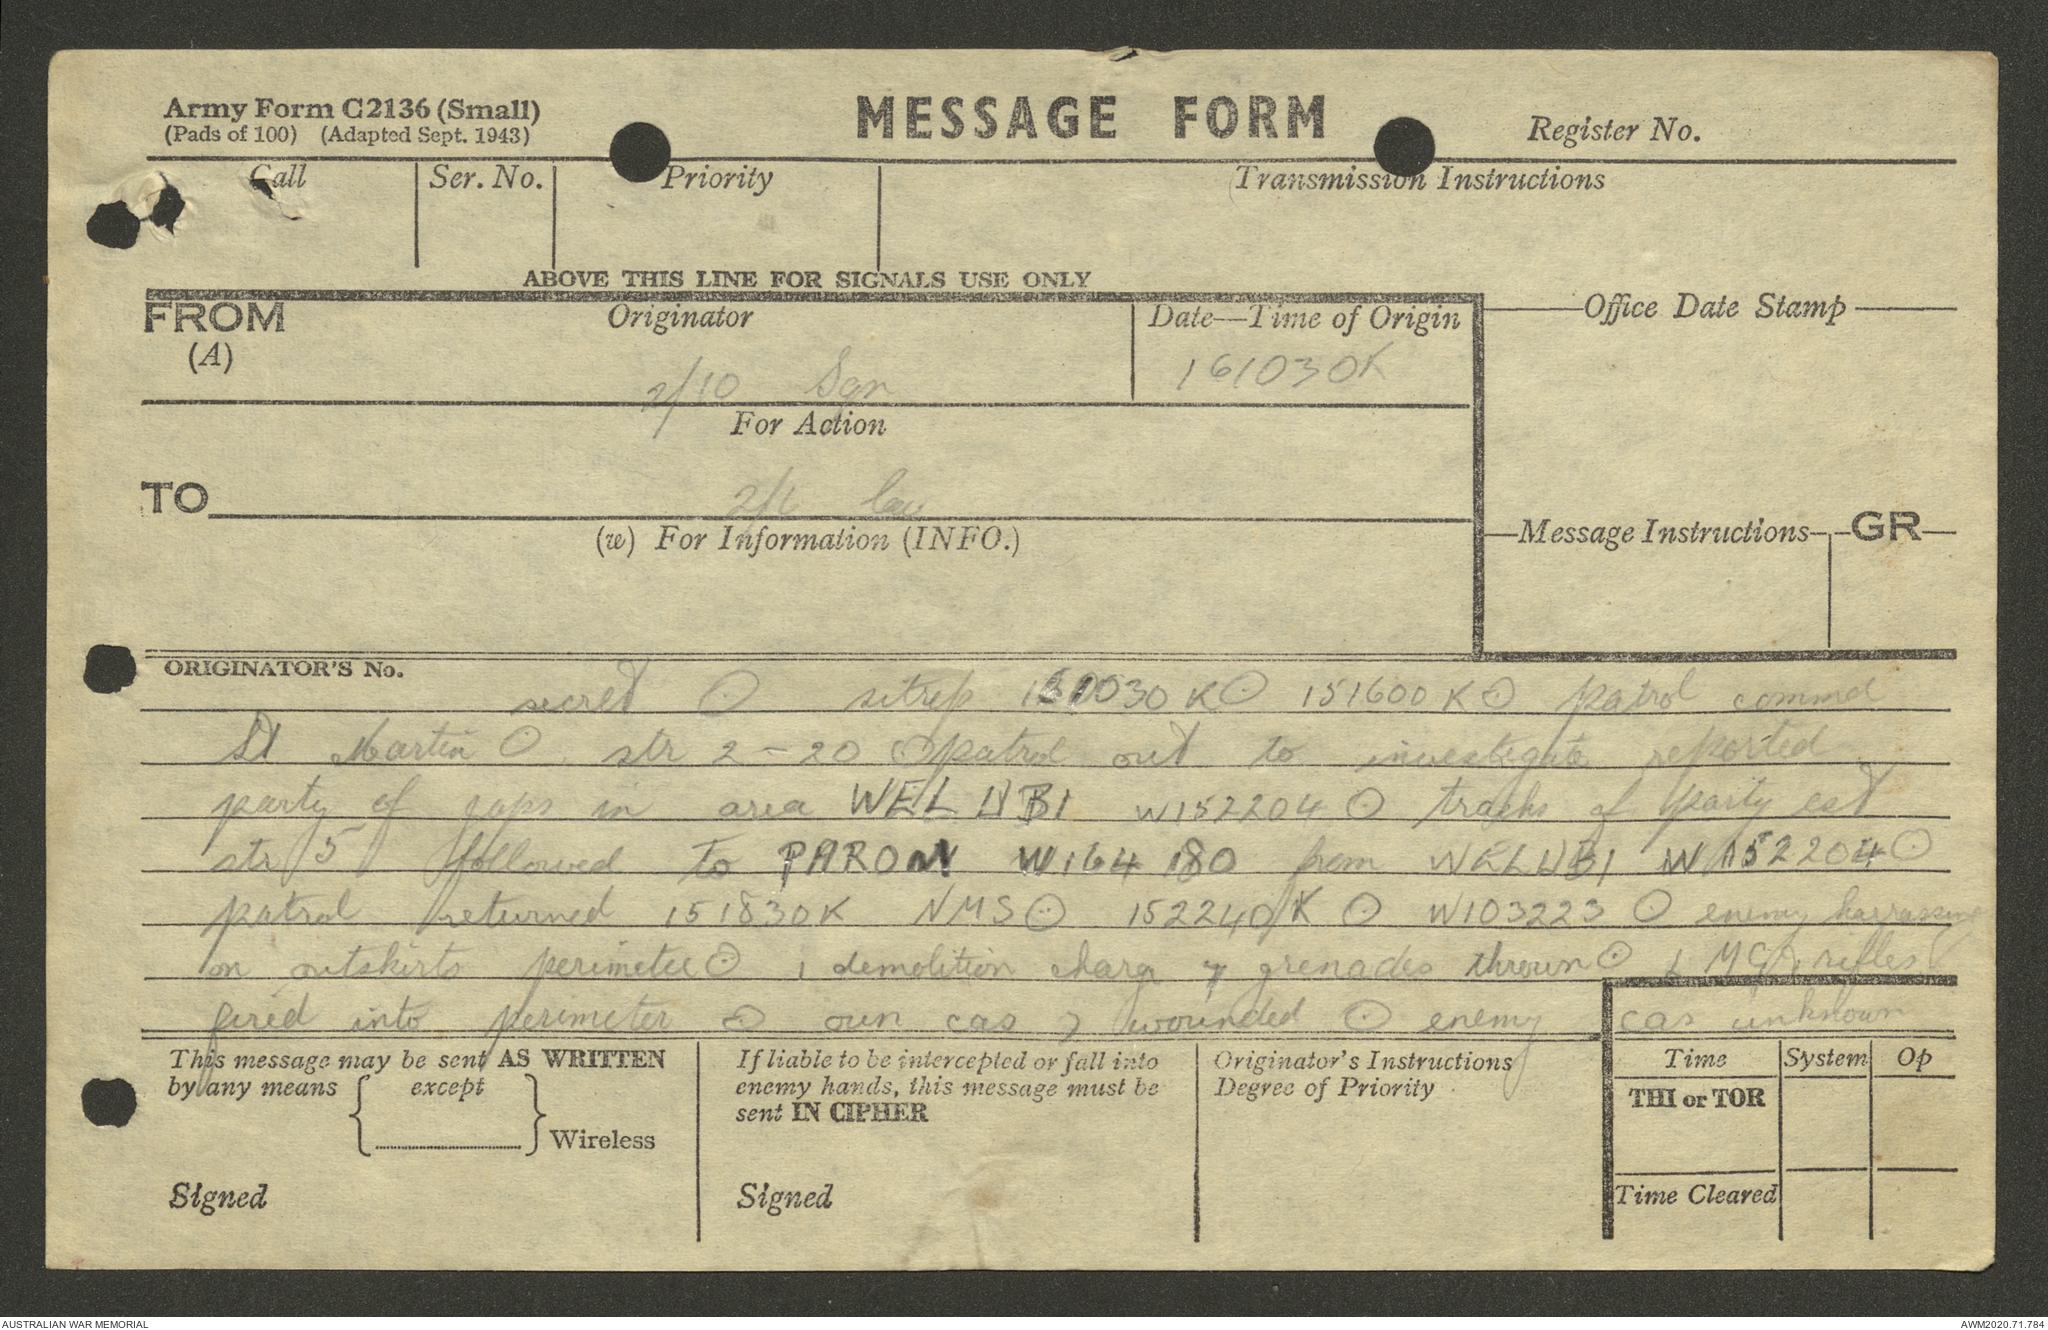 Army Form C2136 (Small)
(Pads of 100) (Adapted Sept. 1943)
MESSAGE FORM
Register No.
Call
Ser. No.
Priority
Transmission Instructions
ABOVE THIS LINE FOR SIGNALS USE ONLY
FROM
(A)
Originator
2/10 Sqn
Date—Time of Origin
161030K
Office Date Stamp
For Action
TO
2/6 Cav
(w) For Information (INFO.)
Message Instructions
GR
ORIGINATOR'S No.
secret ⊙ sitrep K ⊙ 151600 K ⊙ patrol commd
Lt Martin ⊙ str 2-20 ⊙ patrol out to investigate reported
party of japs in area WELUBI W152204 ⊙ tracks of party est
str 5 followed to PARON W164180 from WELUBI W152204 ⊙
patrol returned 151830K NMS ⊙ 152240K ⊙ W103223 ⊙ enemy harrassing
on outskirts perimeter ⊙ 1 demolition charge grenades thrown ⊙ LMG rifles
fired into perimeter ⊙ own cas wounded ⊙ enemy cas unknown
This message may be sent AS WRITTEN
by any means { except
} Wireless
Signed
If liable to be intercepted or fall into
enemy hands, this message must be
sent IN CIPHER
Signed
Originator's Instructions
Degree of Priority
Time
System
Op
THI or TOR
Time Cleared
AUSTRALIAN WAR MEMORIAL
AWM2020.71.784